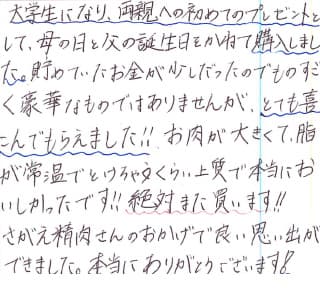 大学生になり、両親への初めてのプレゼントと
して、母の日と父の誕生日をかねて購入しまし
た。貯めていたお金が少しだったのでものすご
く豪華なものではありませんが、とても喜
こんでもらえました!! お肉が大きくて、脂
が常温でとけちゃうくらい上質で本当にお
いしかったです!! 絶対また買います!!
さがえ精肉さんのおかげで良い思い出が
できました。本当にありがとうございます!